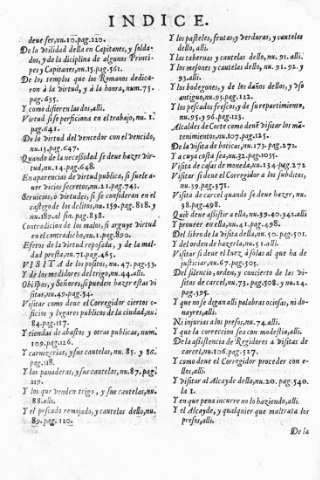 INDICE.
deue ser, nu.10.pag.220.
De la vtilidad della en Capitanes, y solda-
dos, y de la diciplina de algunos Princi-
pes y Capitanes, nu.15.pag.561.
De los templos que los Romanos dedica-
ron à la virtud, y à la honra, num.75.
pag.635.
Y como difieren las dos, alli.
Virtud si se perficiona en el trabajo, nu.1.
pag.641.
De la virtud del vencedor con el vencido,
nu.13.pag.647.
Quando de la necessidad se deue hazer vir-
tud, nu.14.pag.648.
En apariencia de virtud publica, si suele a-
uer vicios secretos, nu.21.pag.745.
Seruicios, ò virtudes, si se consideran en el
castigo de los delitos, nu.159.pag.818. y
nu.180.al fin. pag.838.
Contradicion de los malos, si arguye virtud
en el contradicho, nu.1.pag.890.
Efetos de la virtud reposada, y de la mal-
dad presta, nu.71.pag.465.
VISITA de los positos, nu.47.pag.53.
Y de los medidores del trigo, nu.44.alli.
Obispos, y Señores, si pueden hazer estas vi
sitas, nu.49.pag.54.
Visitar como deue el Corregidor ciertos o-
ficios y lugares publicos de la ciudad, nu.
84.pag.117.
Y tiendas de abastos y otras publicas, num.
109.pag.126.
Y carnicerias, y sus cautelas, nu. 85. y 86.
pag.118.
Y las panaderas, y sus cautelas, nu.87.pag.
119.
Y los que venden trigo, y sus cautelas, nu.
88.alli.
Y el pescado remojado, y cautelas dello, nu.
89.pag.120.
Y los pasteles, frutas, y verduras, y cautelas
dello, alli.
Y las tabernas y cautelas dello, nu.91.alli.
Y los mesones y cautelas dello, nu. 91. 92. y
93.alli.
Y los bodegones, y de los daños dellos, y vso
antiguo, nu.95.pag.122.
Y los pescados frescos, y de su repartimiento,
nu.95.y 96.pag.123.
Alcaldes de Corte como deuen visitar los mã
tenimientos, nu.107.pag.125.
De la visita de boticas, nu.173.pag.272.
Y a cuya costa sea, nu.32.pag.1035.
Visita de casas de moneda, nu.134.pag.272
Visitar si deue el Corregidor a los subditos,
nu.59.pag.371.
Visita de carcel quando se deue hazer, nu.
38.pag.498.
Què deue assistir a ello, nu.39.40.y 41.alli
Y proueer en ella, nu.41.pag.498.
Del libro de la visita della, nu.50.pag.501.
Y del orden de hazerla, nu.51.alli.
Visitar si deue el Iuez, à solas al que ha de
justiciar, nu.67.pag.505.
Del silencio, orden, y concierto de las vi-
sitas de carcel, nu.73.pag.508.y nu.14.
pag.525.
Y que no se digan alli palabras ociosas, ni do-
nayres, alli.
Ni injurias a los presos, nu.74.alli.
Y que la correccion sea con modestia, alli.
De la assistencia de Regidores a visitas de
carcel, nu.106.pag.527.
Y como deue el Corregidor proceder con e-
llos, alli.
Y visitar al Alcayde dello, nu.20.pag.540.
la 1.
Y en que pena incurre no lo haziendo, alli.
Y el Alcayde, y qualquier que maltrata los
presos, alli.
De la